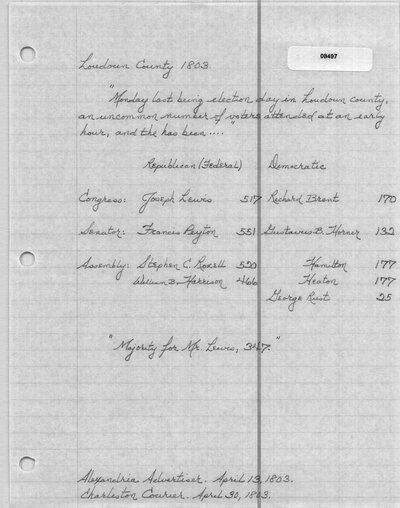 08497
Loudoun County 1803
"Monday last being election day in Loudoun County,
an uncommon number of voters attended at an early
hour, and the has been ...."
Republican (Federal) Democratic
Congress: Joseph Lewis 517 Richard Brent 170
Senator: Francis Peyton 551 Gustavus B. Horner 132
Assembly: Stephen C. Roszell 520 Hamilton 177
William B. Harrison 466 Heaton 177
George Rust 25
"Majority for Mr. Lewis, 347."
Alexandria Advertiser. April 13, 1803.
Charleston Courier. April 30, 1803.